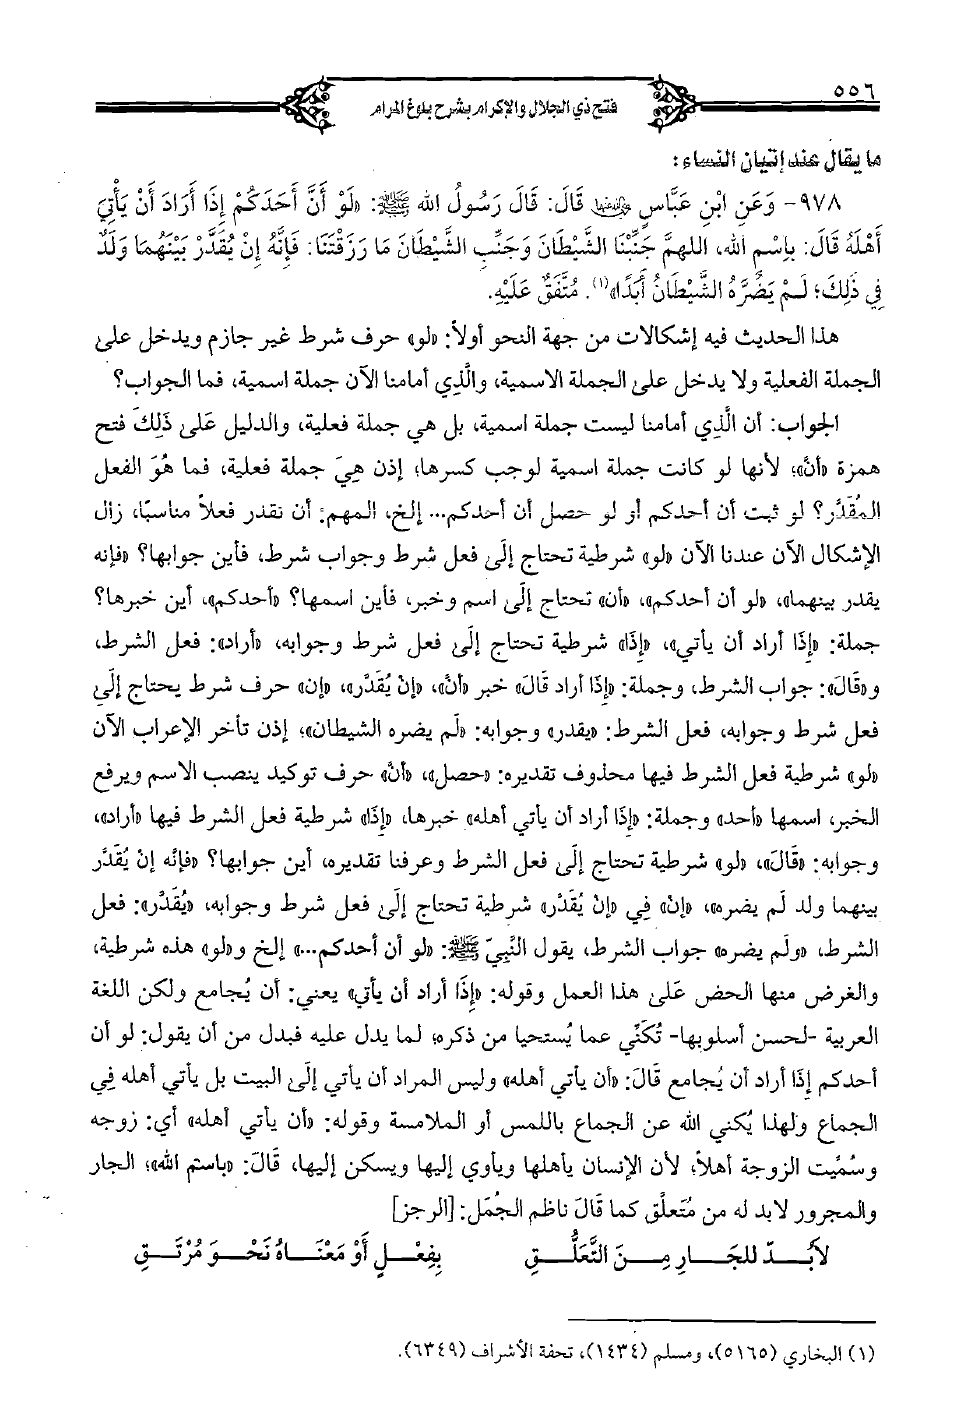 ٥٥٦
فتح ذي الجلال والإكرام بشرح بلوغ المرام
ما يقال عند إتيان النساء:
٩٧٨- وَعَنِ ابْنِ عَبَّاسٍ رضي الله عنهما قَالَ: قَالَ رَسُولُ الله ﷺ: «لَوْ أَنَّ أَحَدَكُمْ إِذَا أَرَادَ أَنْ يَأْتِيَ
أَهْلَهُ قَالَ: بِاسْمِ الله، اللهمَّ جَنِّبْنَا الشَّيْطَانَ وَجَنِّبِ الشَّيْطَانَ مَا رَزَقْتَنَا: فَإِنَّهُ إِنْ يُقَدَّرْ بَيْنَهُمَا وَلَدٌ
فِي ذَلِكَ؛ لَمْ يَضُرَّهُ الشَّيْطَانُ أَبَدًا»(١). مُتَّفَقٌ عَلَيْهِ.
هذا الحديث فيه إشكالات من جهة النحو أولاً: «لو» حرف شرط غير جازم ويدخل على
الجملة الفعلية ولا يدخل على الجملة الاسمية، والَّذي أمامنا الآن جملة اسمية، فما الجواب؟
الجواب: أن الَّذِي أمامنا ليست جملة اسمية، بل هي جملة فعلية، والدليل عَلى ذَلِكَ فتح
همزة «أنَّ»؛ لأنها لو كانت جملة اسمية لوجب كسرها؛ إذن هِيَ جملة فعلية، فما هُوَ الفعل
المُقَدَّر؟ لو ثبت أن أحدكم أو لو حصل أن أحدكم... إلخ، المهم: أن نقدر فعلاً مناسبًا، زال
الإشكال الآن عندنا الآن «لو» شرطية تحتاج إلَى فعل شرط وجواب شرط، فأين جوابها؟ «فإنه
يقدر بينهما»، «لو أن أحدكم»، «أن» تحتاج إلَى اسم وخبر، فأين اسمها؟ «أحدكم»، أين خبرها؟
جملة: «إِذَا أراد أن يأتي»، «إِذَا» شرطية تحتاج إلَى فعل شرط وجوابه، «أراد»: فعل الشرط،
و«قَالَ»: جواب الشرط، وجملة: «إِذَا أراد قَالَ» خبر «أنَّ»، «إنْ يُقَدَّر»، «إن» حرف شرط يحتاج إلَى
فعل شرط وجوابه، فعل الشرط: «يقدر» وجوابه: «لَم يضره الشيطان»؛ إذن تأخر الإعراب الآن
«لو» شرطية فعل الشرط فيها محذوف تقديره: «حصل»، «أنَّ» حرف توكيد ينصب الاسم ويرفع
الخبر، اسمها «أحد» وجملة: «إِذَا أراد أن يأتي أهله» خبرها، «إِذَا» شرطية فعل الشرط فيها «أراد»،
وجوابه: «قَالَ»، «لو» شرطية تحتاج إلَى فعل الشرط وعرفنا تقديره، أين جوابها؟ «فإنَّه إنْ يُقَدَّر
بينهما ولد لَم يضره»، «إنْ» فِي «إنْ يُقَدَّر» شرطية تحتاج إلَى فعل شرط وجوابه، «يُقَدَّر»: فعل
الشرط، «ولَم يضره» جواب الشرط، يقول النَّبِيّ ﷺ: «لو أن أحدكم...» إلخ و«لو» هذه شرطية،
والغرض منها الحض عَلى هذا العمل وقوله: «إِذَا أراد أن يأتي» يعني: أن يُجامع ولكن اللغة
العربية -لحسن أسلوبها- تُكَنِّي عما يُستحيا من ذكره؛ لما يدل عليه فبدل من أن يقول: لو أن
أحدكم إِذَا أراد أن يُجامع قَالَ: «أن يأتي أهله» وليس المراد أن يأتي إلَى البيت بل يأتي أهله فِي
الجماع ولهذا يُكني الله عن الجماع باللمس أو الملامسة وقوله: «أن يأتي أهله» أي: زوجه
وسُمِّيت الزوجة أهلاً؛ لأن الإنسان يأهلها ويأوي إليها ويسكن إليها، قَالَ: «باسم الله»؛ الجار
والمجرور لابد له من مُتعلَّق كما قَالَ ناظم الجُمَل: [الرجز]
لاَبُــدَّ للجَــارِ مِــنَ التَّعَلُّــقِ بِفِعْــلٍ أَوْ مَعْنَــاهُ نَحْــوَ مُرْتَــقِ
(١) البخاري (٥١٦٥)، ومسلم (١٤٣٤)، تحفة الأشراف (٦٣٤٩).